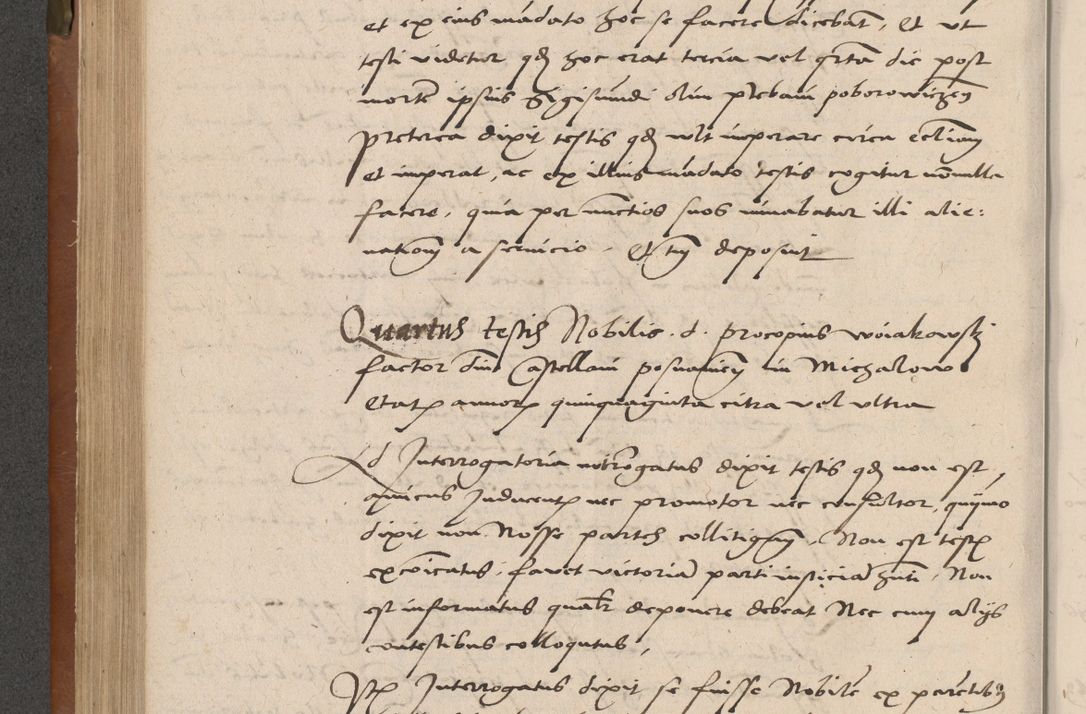 et ex eius mādato hoc se facere dicebat, Et ut
testi videtur qd hoc erat tercia vel qrta die post
mortē ipsius Sigismūdi olim plebani poborowiczen
Preterea dixit testis qd vlt imperare circa eccliam
et imperat, ac ex illius mādato testis cogitur nonnulla
facere, quia per nuctios suos minabatur illi alie:
nationem a seruicio. Et tm deposuit
Quartus testis Nobilis d. procopius woiakowskj
factor dni Castellani posnanien in Michalow
etatis annorum quinquaginta citra vel vltra
Ad Interrogatoria interrogatus dixit testis qd non est
amicus Inducentis nec promotor nec consultor, quymo
dixit non Nosse partes collitigan. Non est testis
excoicatus, fauet victoriā parti iusticiā hnti. Non
est informatus qualr deponere debeat Nec cum alijs
contestibus colloqutus,
Itē Interrogatus dixit se fuisse Nobilē ex parētibus